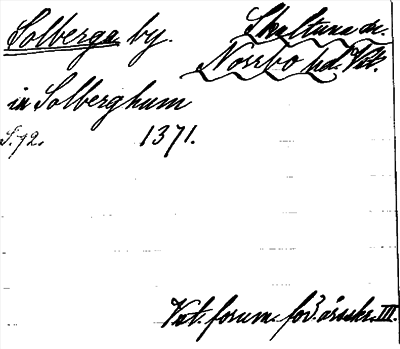 Solberga by. Skultuna sn.
Norrbo hd. Vstm.
in Solberghum
S. 72. 1371.
Vst. fornm. för. årsskr. III.